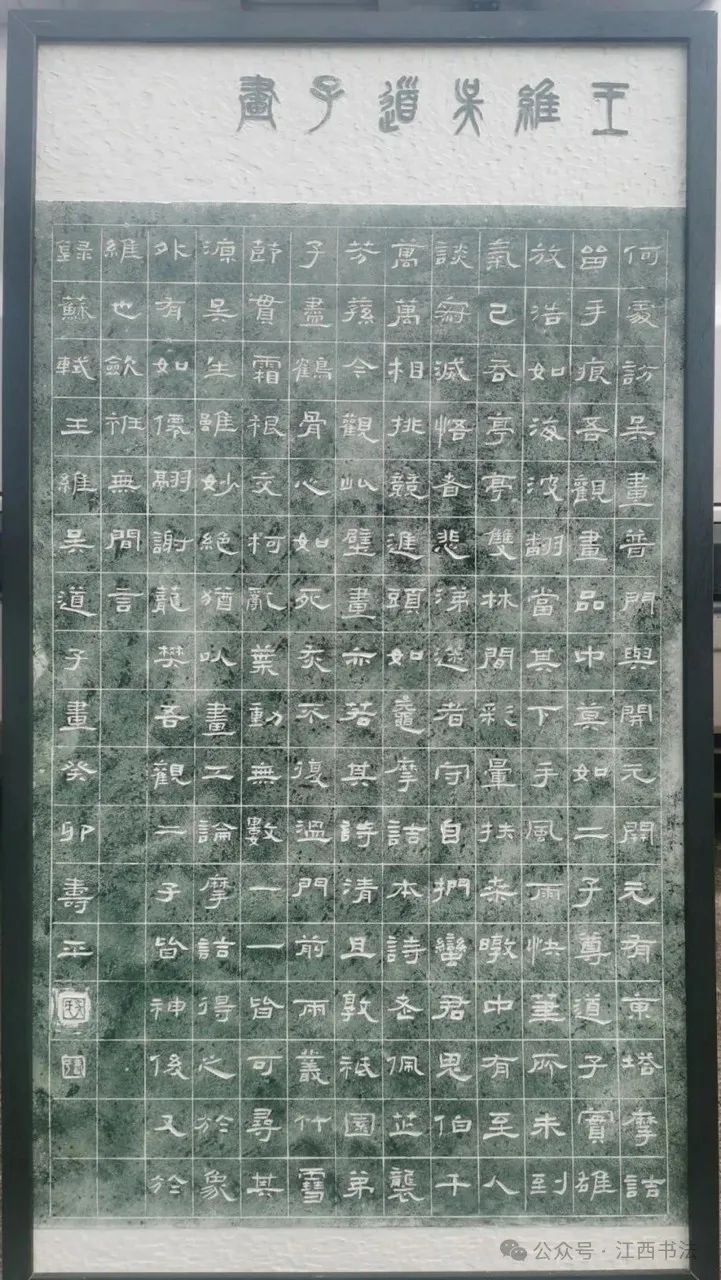 王維吳道子畫
何處訪吳畫普門與開元開元有東塔摩詰
留手痕吾觀畫品中莫如二子尊道子實雄
放浩如海波翻當其下手風雨快筆所未到
氣已吞亭亭雙林間彩暈扶桑暾中有至人
談寂滅悟者悲涕迷者守自捫蠻君鬼伯千
萬萬相排競進頭如黿摩詰本詩老佩芷襲
芳蓀今觀此壁畫亦若其詩清且敦祇園弟
子盡鶴骨心如死灰不復溫門前兩叢竹雪
節貫霜根交柯亂葉動無數一一皆可尋其
源吳生雖妙絕猶以畫工論摩詰得之於象
外有如僊翮謝籠樊吾觀二子皆神俊又於
維也歛衽無間言
錄蘇軾王維吳道子畫癸卯壽正
公众号·江西书法